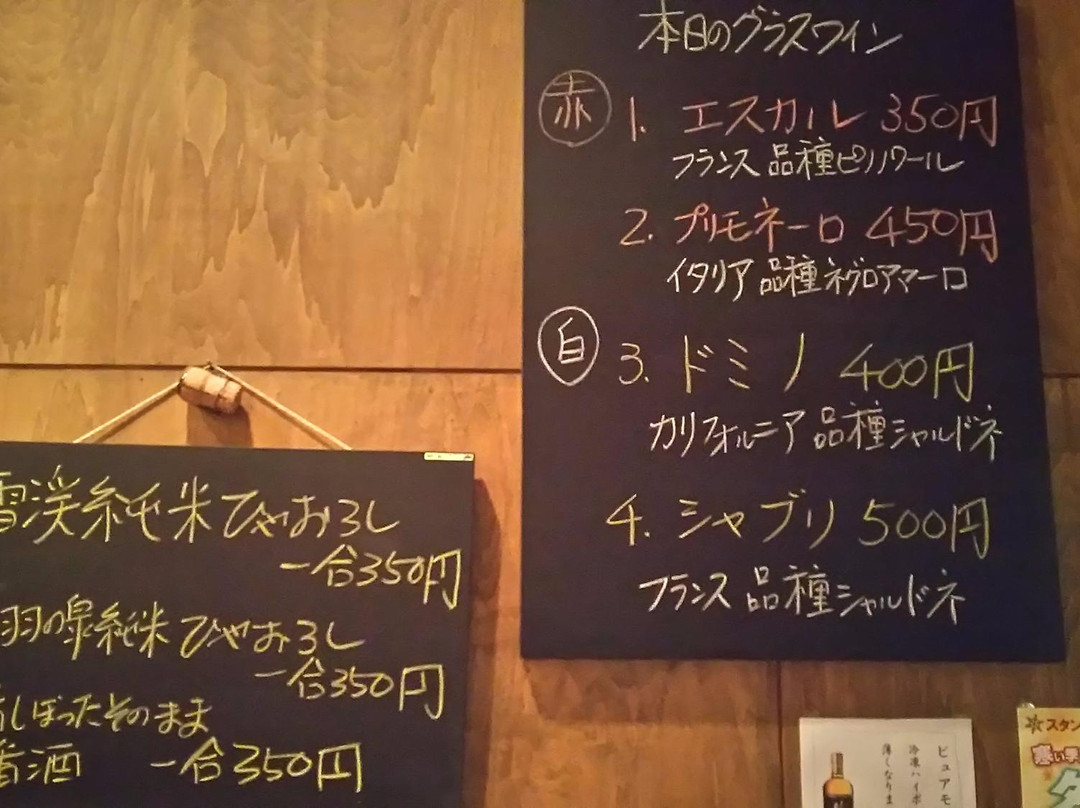 本日のグラスワイン
赤 1. エスカル 350円
フランス 品種ピノノワール
2. プリモネーロ 450円
イタリア 品種ネグロアマーロ
白 3. ドミノ 400円
カリフォルニア 品種シャルドネ
4. シャブリ 500円
フランス 品種シャルドネ
雪渓純米ひやおろし
一合350円
羽の泉純米ひやおろし
一合350円
しぼったそのまま
番酒 一合350円
ピュアモ
冷凍ハイボ
薄くなりま
スタン
寒い季